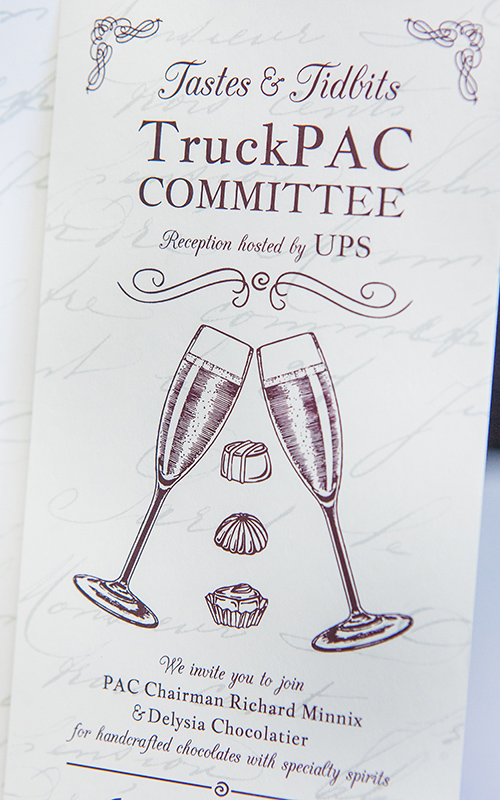 Tastes & Tidbits
TruckPAC
COMMITTEE
Reception hosted by UPS
We invite you to join
PAC Chairman Richard Minnix
& Delysia Chocolatier
for handcrafted chocolates with specialty spirits